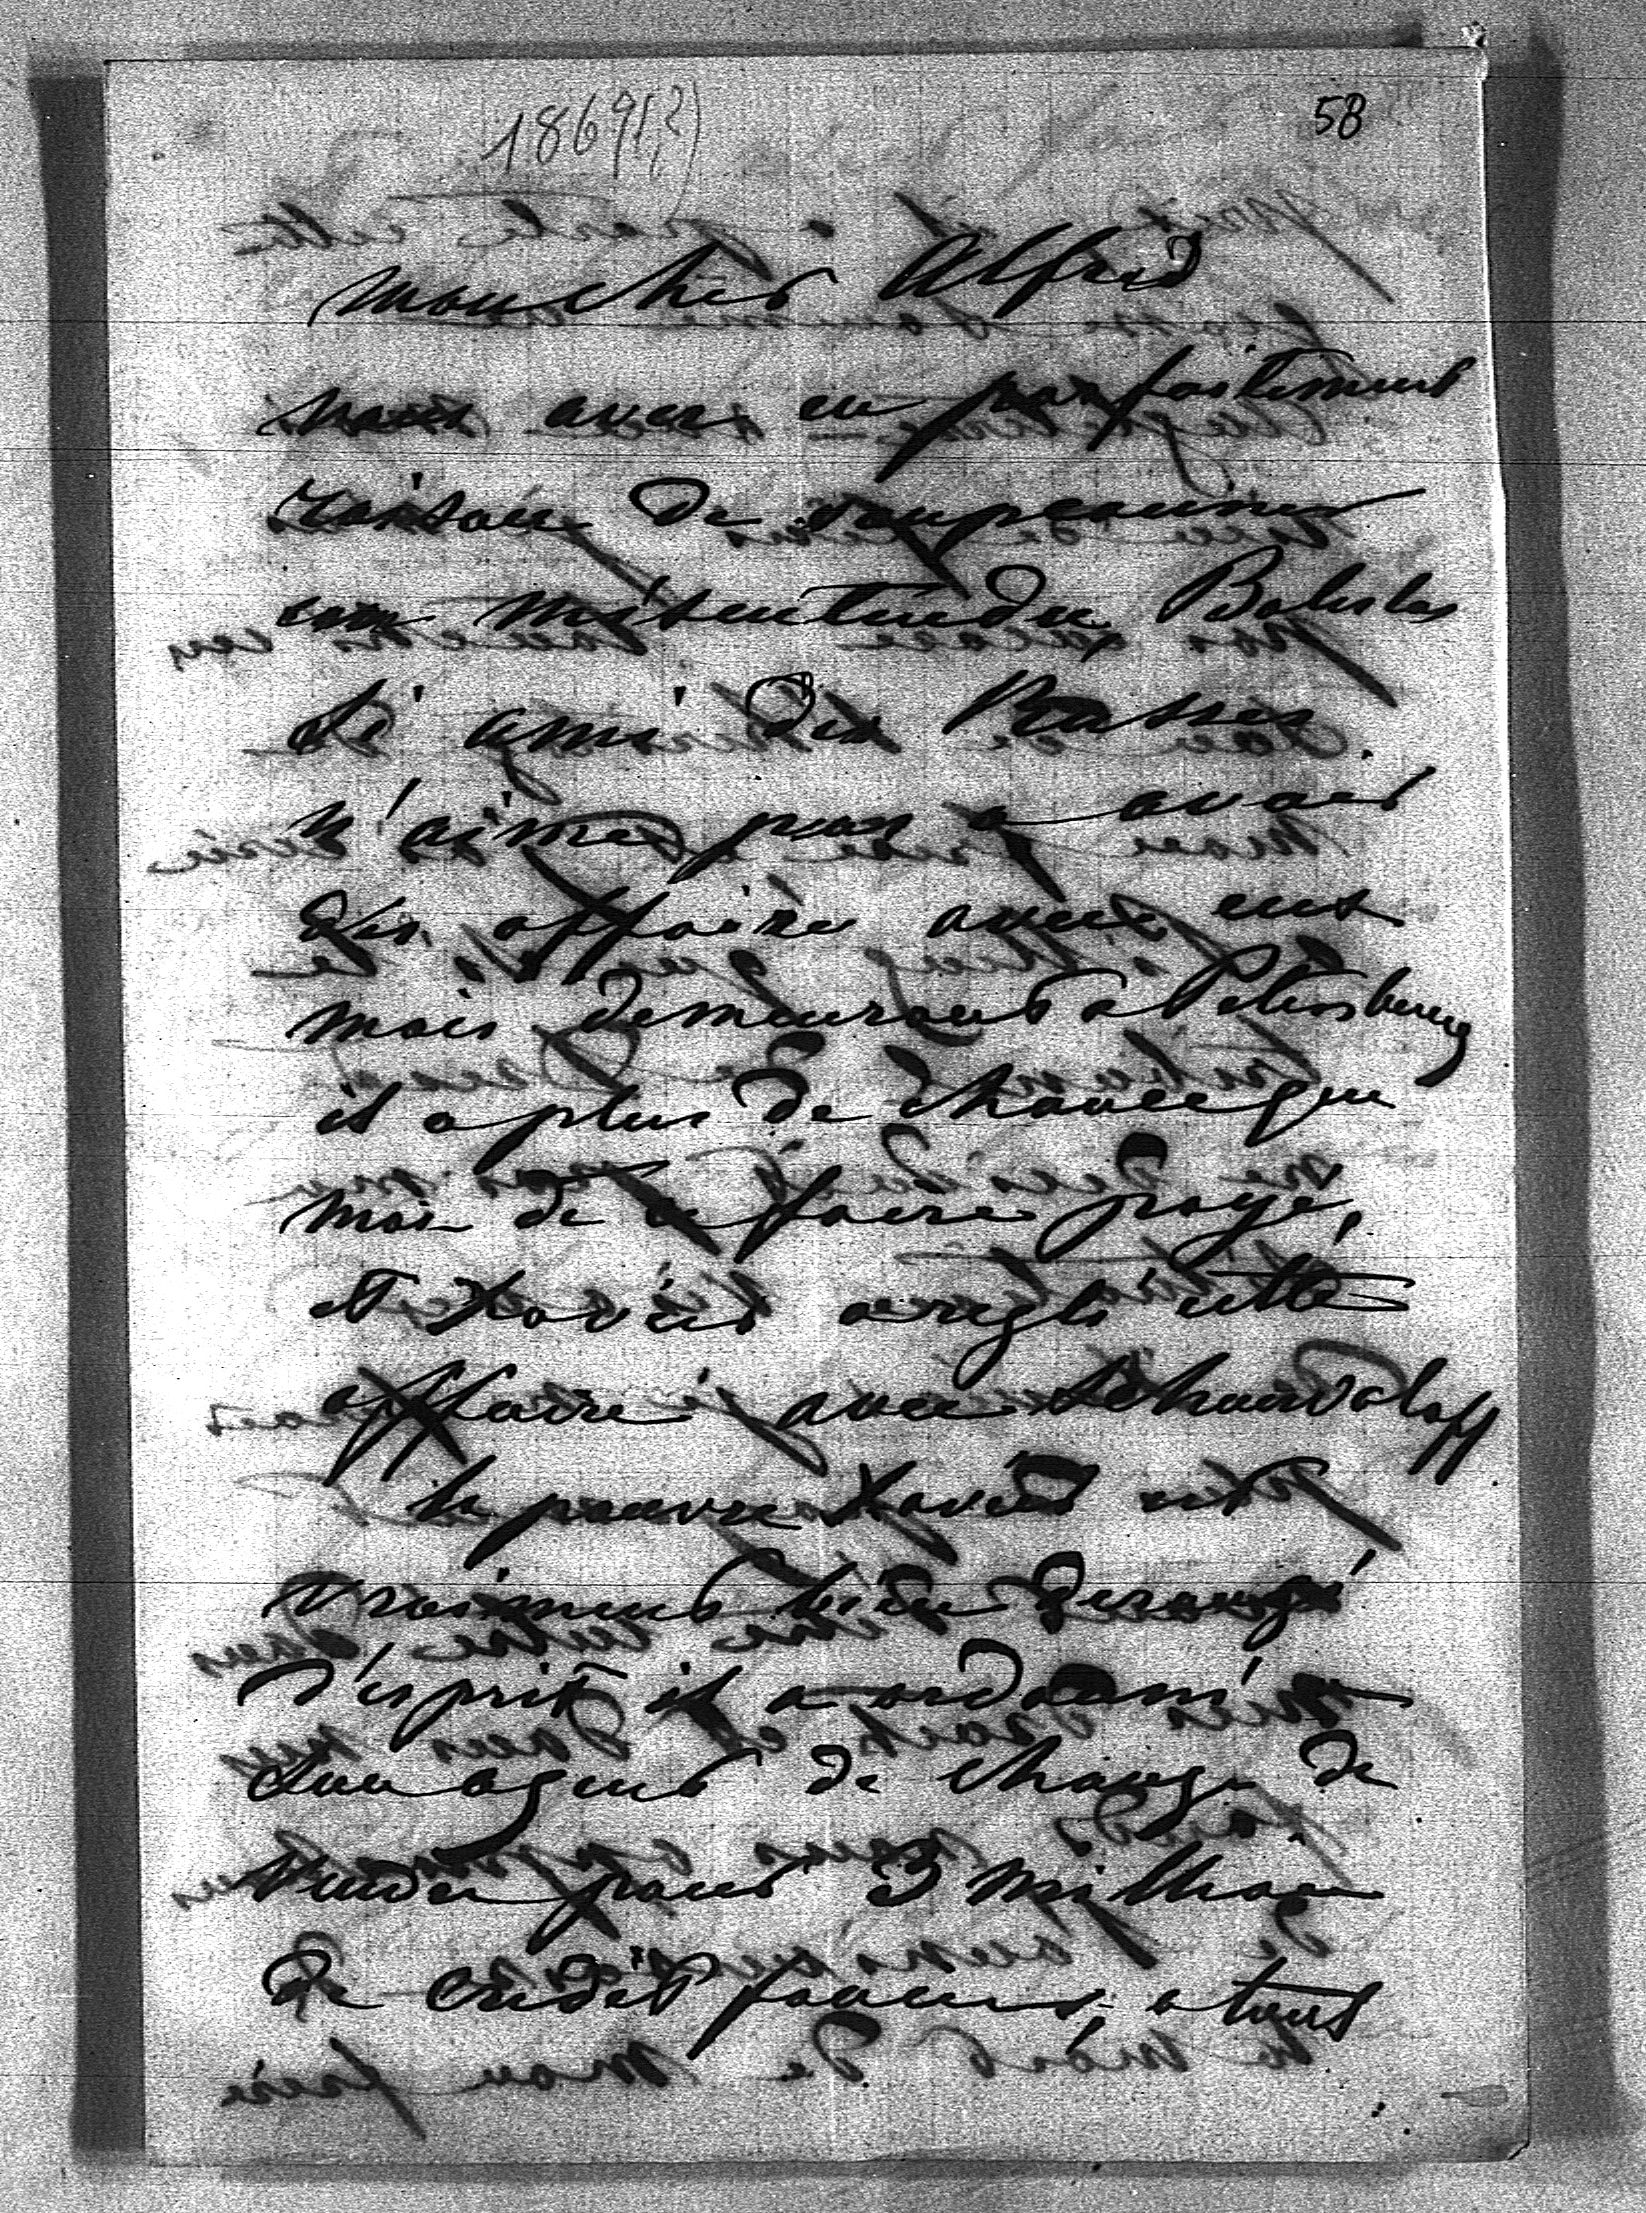 1869(?)
58
mon cher Alfred
vous avez eu parfaitement
raison de soupconner
un mésentendu Boleslas
si ami des Russes
n'aime pas a avoir
des affaire avec eux
mais demeurant a Petersbourg
il a plus de chance que
moi de se faire paye,
et Xavier a reglé cette
affaire avec Schouvaloff
le pauvre Xavier est
vraiment bien derangé
d'esprit il a ordonné a
son agent de change de
vendre pour 3 milhon
de credit foncier, a tout